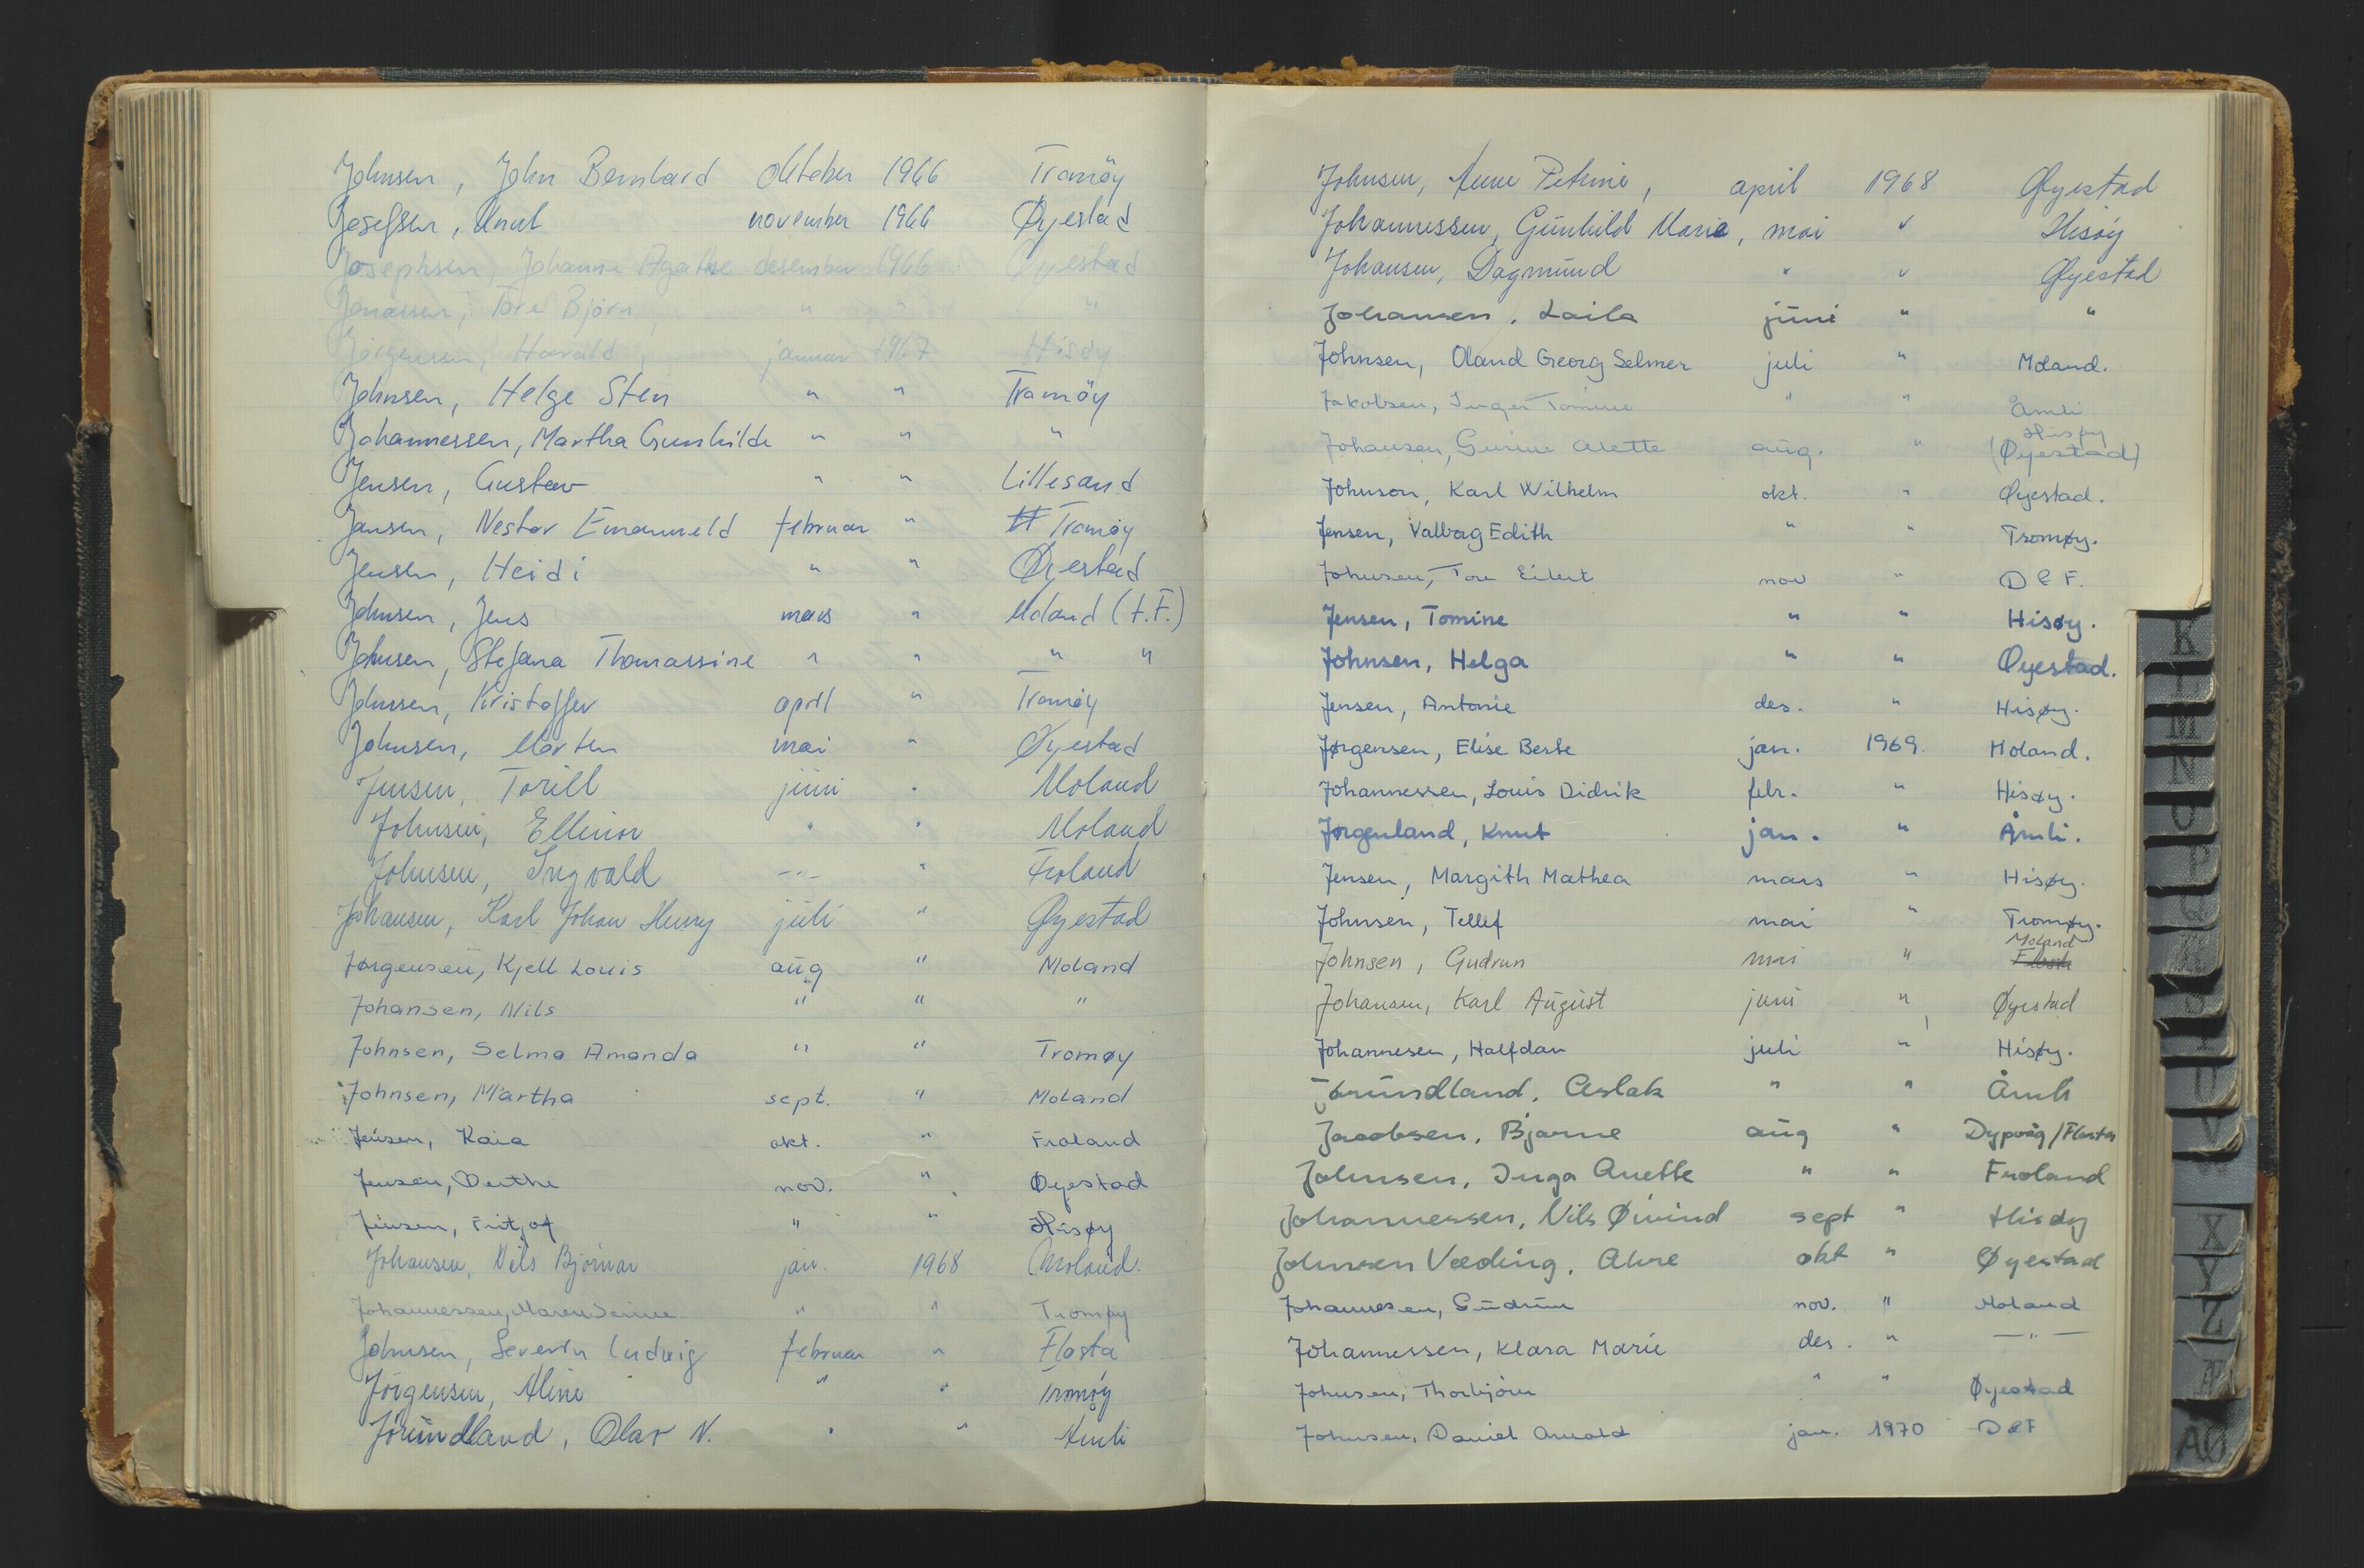 Johnsen, John Bernhard oktober 1966 Tromøy
Josefsen, Knut november 1966 Øyestad
Josephsen, Johanne Agathe desember 1966 Øyestad
Jonassen, Tore Bjørn " " "
Jørgensen, Harald, januar 1967 Hisöy
Johnsen, Helge Sten " " Tromöy
Johannessen, Martha Gunhilde " " "
Jensen, Gustav " " Lillesand
Jansen, Nestor Emanueld februar " Tromøy
Jensen, Heidi " " Øyestad
Johnsen, Jens mars " Moland (t.F.)
Johnsen, Stefana Thomassine " " " "
Johnsen, Kristoffer april " Tromøy
Johnsen, Morten mai " Øyestad
Jensen, Torill juni " Moland
Johnsen, Ellinor " " Moland
Johnsen, Ingvald -"- " Froland
Johansen, Karl Johan Henry juli " Øyestad
Jørgensen, Kjell Louis aug " Moland
Johansen, Nils " " "
Johnsen, Selma Amanda " " Tromøy
Johnsen, Martha sept. " Moland
Jensen, Kaia okt. " Froland
Jensen, Dorthe nov. " Øyestad
Jensen, Fritjof " " Hisøy
Johansen, Nils Bjørnar jan. 1968 Moland.
Johannessen, Maren Serine " " Tromøy
Johnsen, Severin Ludvig februar " Flosta
Jörgensen, Aline " " Tromöy
Jörundland, Olav N. " " Åmli
Johnsen, Anne Petrine, april 1968 Øyestad
Johannessen, Gunhild Marie, mai " Hisøy
Johansen, Dagmund " " Øyestad
Johansen, Laila juni " "
Johnsen, Oland Georg Selmer juli " Moland.
Jakobsen, Inger Tomine " " Åmli
Hisøy
Johansen, Gunine Alette aug. " (Øyestad)
Johnson, Karl Wilhelm okt. " Øyestad.
Jensen, Valborg Edith " " Tromøy.
Johnsen, Tore Eilert nov " D & F.
Jensen, Tomine " " Hisøy.
Johnsen, Helga " " Øyestad.
Jensen, Antonie des. " Hisøy.
Jørgensen, Elise Berte jan. 1969. Moland.
Johannessen, Louis Didrik febr. " Hisøy.
Jørgenland, Knut jan. " Åmli.
Jensen, Margith Mathea mars " Hisøy.
Johnsen, Tellef mai " Tromøy.
Moland
Johnsen, Gudrun mai "
Johansen, Karl August juni " Øyestad
Johannesen, Halfdan juli " Hisøy.
Jørundland, Aslak " " Åmli
Jacobsen, Bjarne aug " Dypvåg/Flosta
Johnsen, Inga Anette " " Froland
Johannessen, Nils Øivind sept " Hisöy
Johnsen Væding, okt " Øyestad
Johannesen, Gudrun nov. " Moland
Johannessen, Klara Marie des. " —"—
Johnsen, Thorbjörn " " Øyestad
Johnsen, Daniel Arnold jan. 1970 D&F
K
M
N
O
P
U
V
X
Y
Z
Æ
AØ